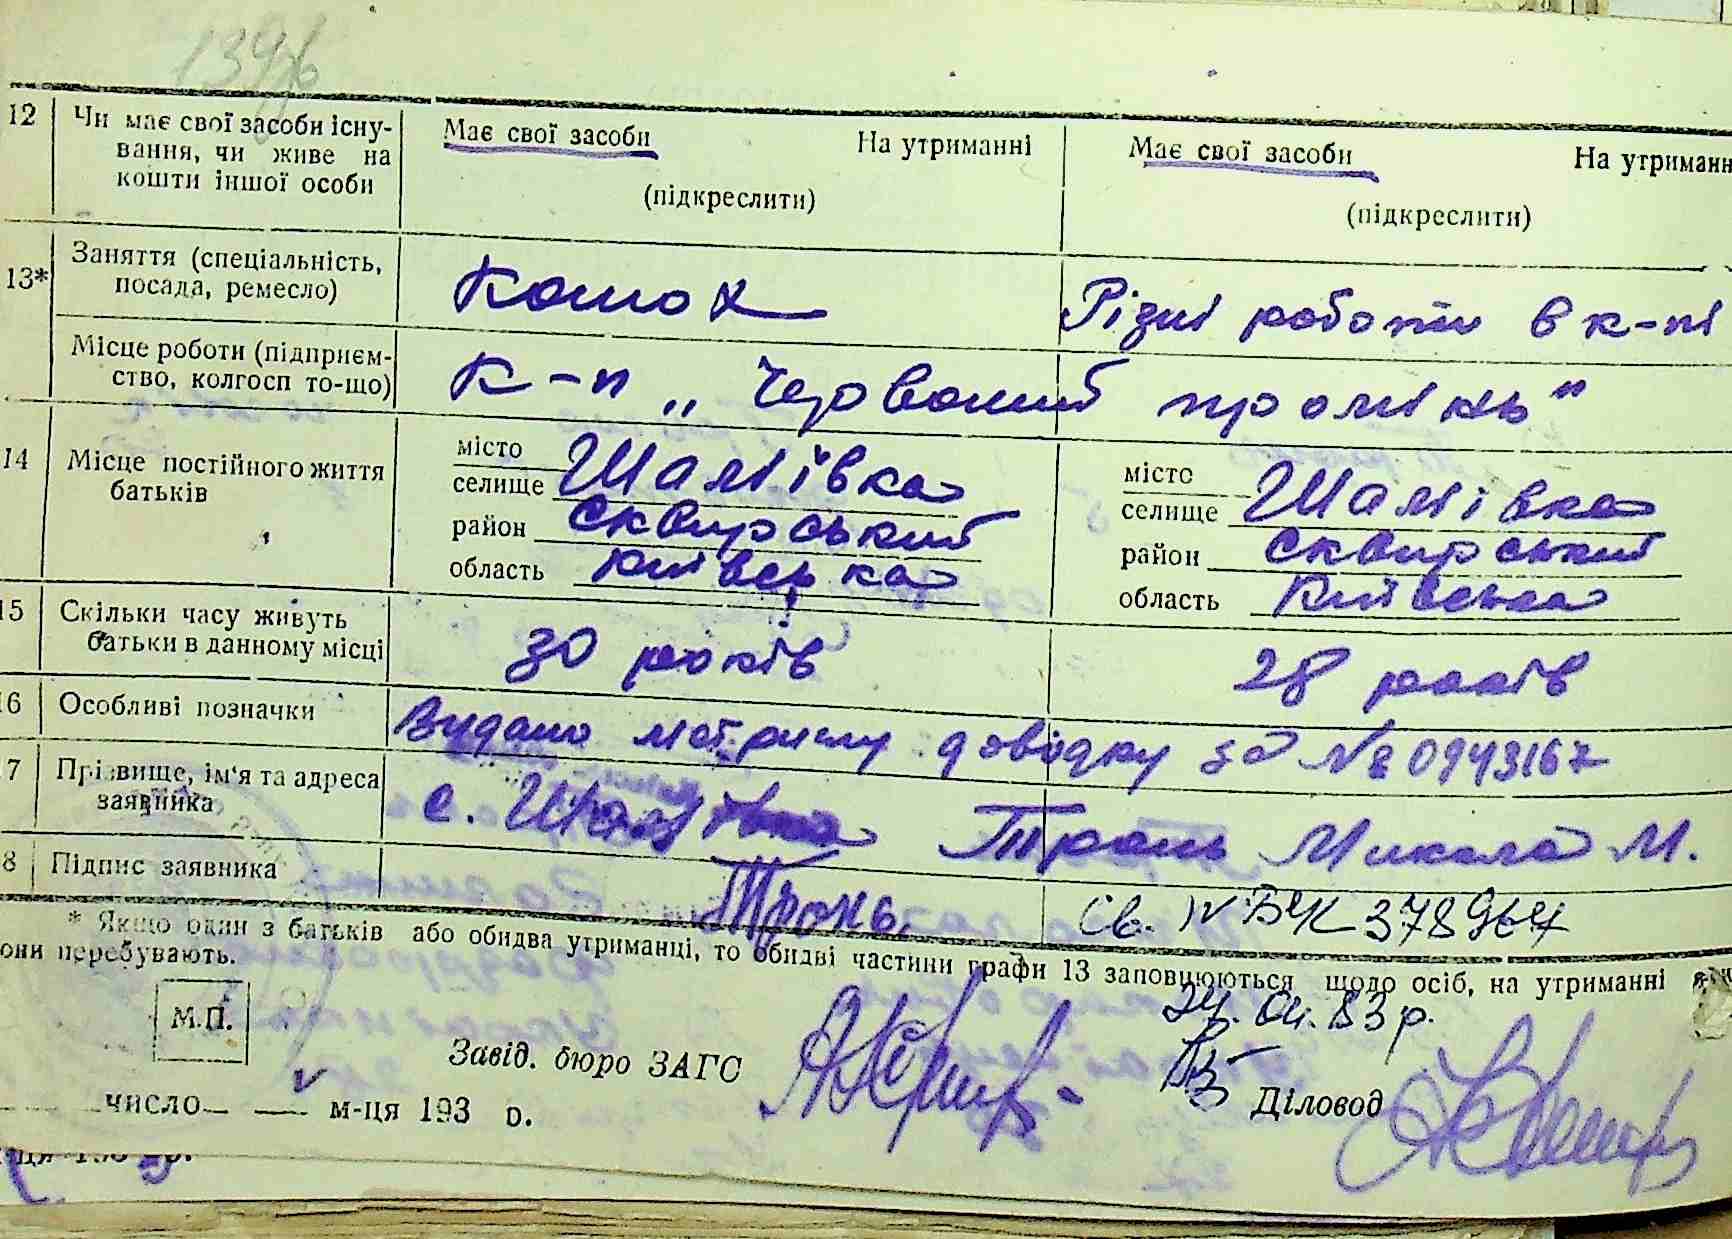 139
12 Чи має свої засоби існу-
вання, чи живе на
кошти іншої особи
Має свої засоби На утриманні
(підкреслити)
Має свої засоби На утриманн
(підкреслити)
13* Заняття (спеціальність,
посада, ремесло)
Конюх
Різні роботи в к-пі
Місце роботи (підприєм-
ство, колгосп то-що)
К-п „Червоний промінь"
14 Місце постійного життя
батьків
місто
селище Шаліївка
район Сквирський
область Київська
місто
селище Шаліївка
район Сквирський
область Київська
15 Скільки часу живуть
батьки в данному місці
30 років
28 років
6 Особливі позначки
Видано метричну довідку за № 0943167
7 Прізвище, ім'я та адреса
заявника
с. Шаліївка Тронь Микола М.
8 Підпис заявника
Тронь.
Св. № ВЧК 378964
* Якщо один з батьків або обидва утриманці, то обидві частини графи 13 заповнюються щодо осіб, на утриманні
они перебувають.
24.04.83 р.
М.П.
Завід. бюро ЗАГС
Діловод
число м-ця 193 р.